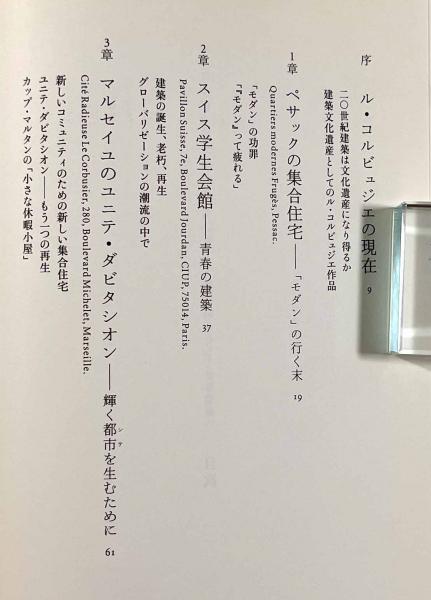 序 ル・コルビュジエの現在 9
二〇世紀建築は文化遺産になり得るか
建築文化遺産としてのル・コルビュジエ作品
1章 ペサックの集合住宅――「モダン」の行く末 19
Quartiers modernes Frugès, Pessac.
「モダン」の功罪
「『モダン』って疲れる」
2章 スイス学生会館――青春の建築 37
Pavillon Suisse, 7e, Boulevard Jourdan, CIUP, 75014, Paris.
建築の誕生、老朽、再生
グローバリゼーションの潮流の中で
3章 マルセイユのユニテ・ダビタシオン――輝く都市を生むために 61
シテ
Cité Radieuse Le Corbusier, 280, Boulevard Michelet, Marseille.
新しいコミュニティのための新しい集合住宅
ユニテ・ダビタシオン――もう一つの再生
カップ・マルタンの「小さな休暇小屋」